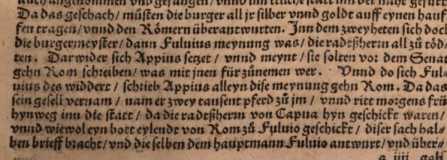 Da das geschach / müsten die burger all jr silber vnnd goldt auff eynen hauf
fen tragen / vnnd den Römern überantwurten. Jnn dem zweyheten sich doch
die burgermeyster / dann Fuluius meynung was / die radeßherrn all zů tödten
ten. Dar wider sich Appius setzet / vnnd meynt / sie solten vor dem Senat
gehn Rom schreiben / was mit jnen für zůnemen wer. Vnnd do sich Ful
uius des widdert / schrieb Appius alleyn dise meynung gehn Rom. Da das
sein gesell vernam / nam er zwey tausent pferd zů jm / vnnd ritt morgens frů
hynweg inn die statt / da die radeßherrn von Capua hyn geschickt waren /
vnnd wiewol eyn bott eylende von Rom zů Fuluio geschickt / diser sach hal
ben brieff bracht / vnd die selben dem hauptmann Fuluio antwurt / vnd über